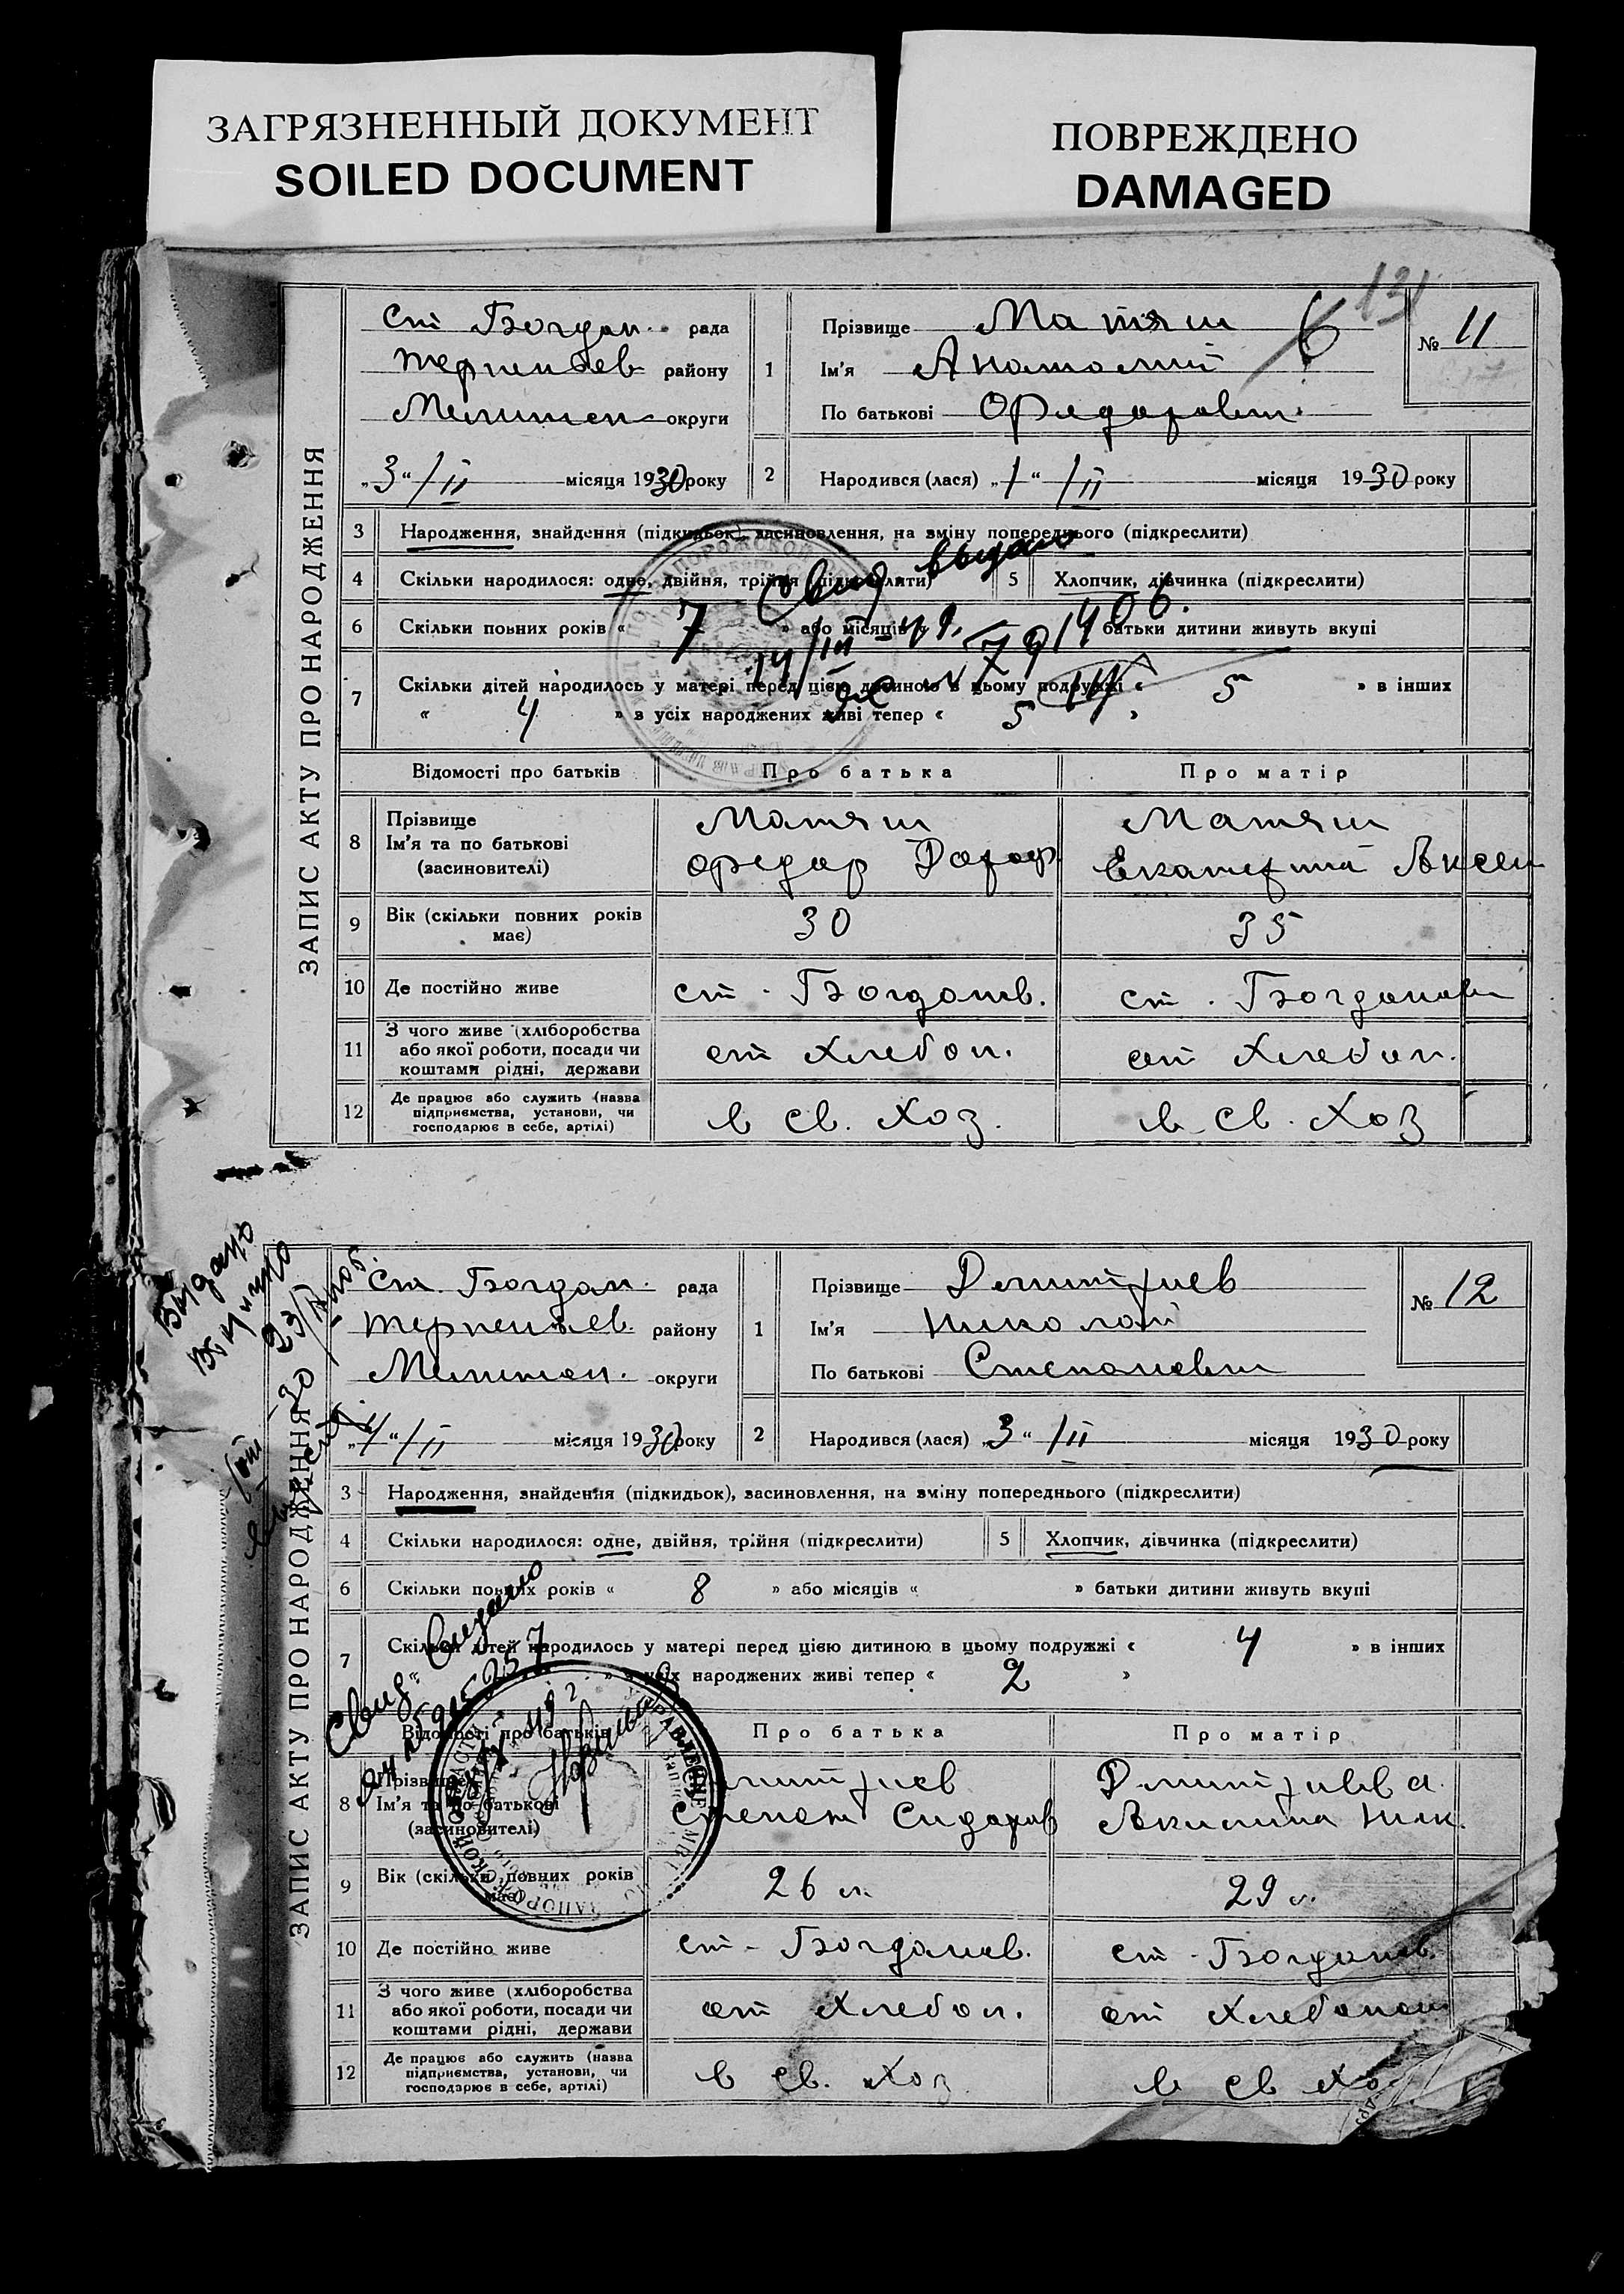 ЗАГРЯЗНЕННЫЙ ДОКУМЕНТ
SOILED DOCUMENT
ПОВРЕЖДЕНО
DAMAGED
131
ЗАПИС АКТУ ПРО НАРОДЖЕННЯ
Ст Богдан. рада
район
Мелитоп округи
„3“/II місяця 1930 року
1 Прізвище Матяш
Ім'я Анатолий
По батькові Фёдорович
№ 11
6
2 Народився (лася) „1“ /II місяця 1930 року
3 Народження, знайдення (підкидьок), засиновлення, на зміну попереднього (підкреслити)
4 Скільки народилося: одне, двійня, трійня (підкреслити) 5 Хлопчик, дівчинка (підкреслити)
Свид. выдан
6 Скільки повних років « 7 » або місяців « » батьки дитини живуть вкупі
7 Скільки дітей народилось у матері перед цією дитиною в цьому подружжі « 5 » в інших
« 4 » з усіх народжених живі тепер « 5 »
Відомості про батьків Про батька Про матір
8 Прізвище Ім'я та по батькові (засиновителі)
Матяш Матяш
Федор Екатерина Аксен
9 Вік (скільки повних років має) 30 35
10 Де постійно живе ст. Богданов. ст. Богданов
11 З чого живе (хліборобства або якої роботи, посади чи коштами рідні, держави
от хлебоп. от хлебоп.
12 Де працює або служить (назва підприємства, установи, чи господарює в себе, артілі)
в св. хоз. в св. хоз
ЗАПИС АКТУ ПРО НАРОДЖЕННЯ
Ст. Богдан. рада
району
Мелитоп. округи
„4“/II місяця 1930 року
1 Прізвище Дмитриев
Ім'я Николай
По батькові Степанович
№ 12
2 Народився (лася) „3“ /II місяця 1930 року
3 Народження, знайдення (підкидьок), засиновлення, на зміну попереднього (підкреслити)
4 Скільки народилося: одне, двійня, трійня (підкреслити) 5 Хлопчик, дівчинка (підкреслити)
6 Скільки повних років « 8 » або місяців « » батьки дитини живуть вкупі
7 Скільки дітей народилось у матері перед цією дитиною в цьому подружжі « 4 » в інших
« » з усіх народжених живі тепер « 2 »
Свид. Видано
Відомості про батьків Про батька Про матір
8 Прізвище Ім'я та по батькові (засиновителі)
Дмитриев Дмитриева
Степан Сидоров Акилина Ник.
9 Вік (скільки повних років має) 26 л. 29 л.
10 Де постійно живе ст. Богданов. ст. Богданов.
11 З чого живе (хліборобства або якої роботи, посади чи коштами рідні, держави
от хлебоп. от хлебопаш
12 Де працює або служить (назва підприємства, установи, чи господарює в себе, артілі)
в св. хоз в св хо